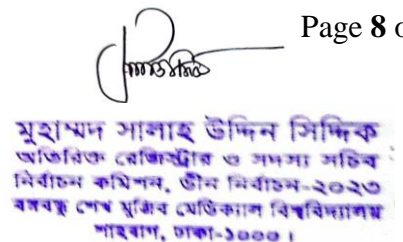 Page 8 o
মুহাম্মদ সালাহ উদ্দিন সিদ্দিক
অতিরিক্ত রেজিস্ট্রার ও সদস্য সচিব
নির্বাচন কমিশন, ডীন নির্বাচন-২০২৩
বঙ্গবন্ধু শেখ মুজিব মেডিক্যাল বিশ্ববিদ্যালয়
শাহবাগ, ঢাকা-১০০০।